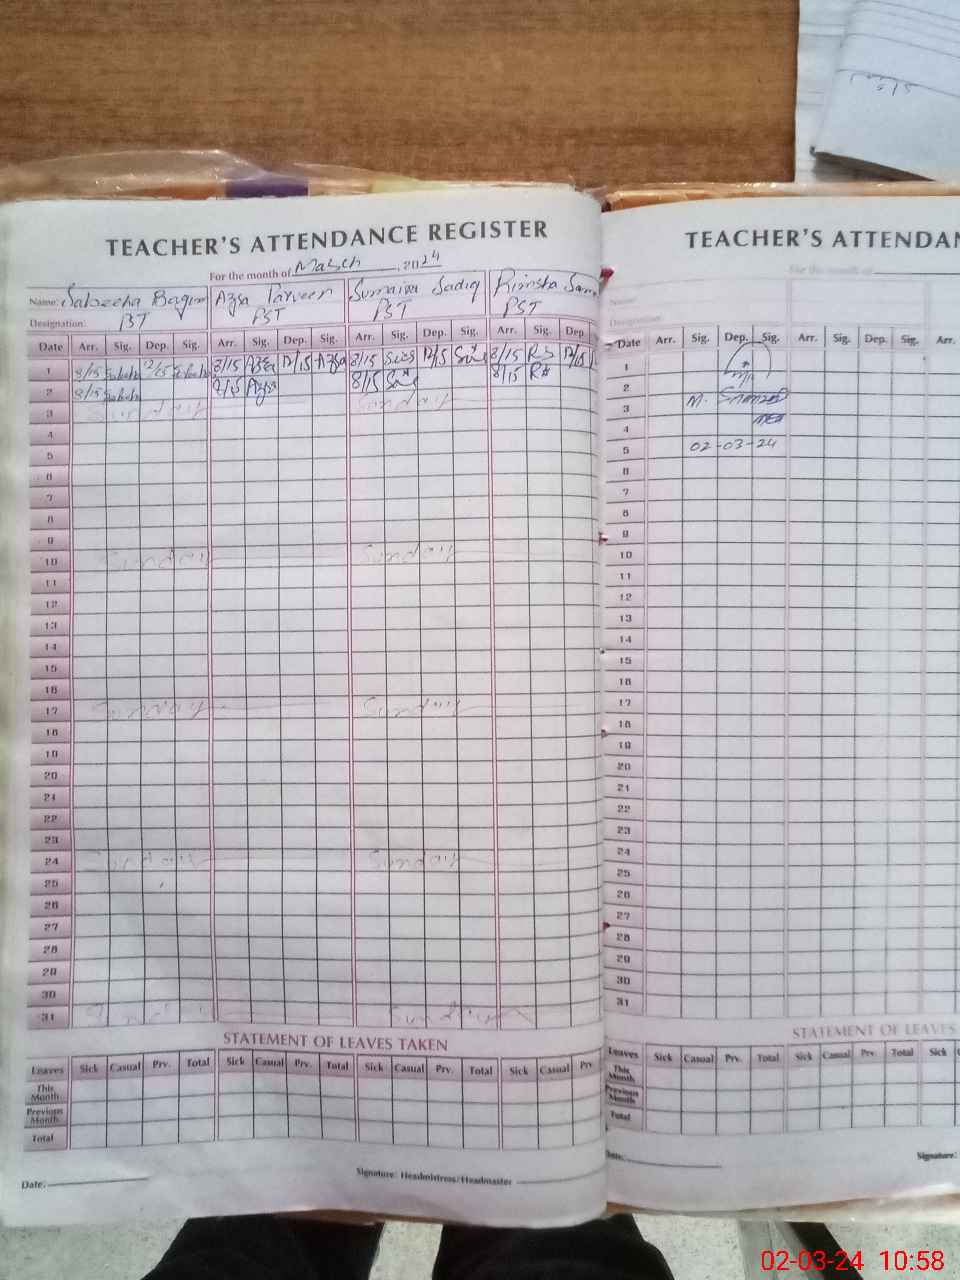 TEACHER'S ATTENDANCE REGISTER
For the month of March, 2024
Name: Sabeeha Begum Azra Parveen Sumaira Sadiq Rimsha
Designation: PST PST PST
Date Arr. Sig. Dep. Sig. Arr. Sig. Dep. Sig. Arr. Sig. Dep. Sig. Arr. Sig. Dep.
1 8/15 12/15 8/15 12/15 8/15 12/15 8/15 RS 12/15
2 8/15 8/15 8/15 8/15
3 Sunday Sunday
4
5
6
7
8
9
10 Sunday Sunday
11
12
13
14
15
16
17 Sunday Sunday
18
19
20
21
22
23
24 Sunday Sunday
25
26
27
28
29
30
31 Sunday Sunday
STATEMENT OF LEAVES TAKEN
Leaves Sick Casual Prv. Total Sick Casual Prv. Total Sick Casual Prv. Total Sick Casual Prv.
This Month
Previous Month
Total
Date:
Signature: Headmistress/Headmaster
TEACHER'S ATTENDAN
For the month of
Name:
Designation:
Date Arr. Sig. Dep. Sig. Arr. Sig. Dep. Sig. Arr.
1
2
3 M.
4
5 02-03-24
6
7
8
9
10
11
12
13
14
15
16
17
18
19
20
21
22
23
24
25
26
27
28
29
30
31
STATEMENT OF LEAVES
Leaves Sick Casual Prv. Total Sick Casual Prv. Total Sick
This Month
Previous Month
Total
Date:
Signature:
02-03-24 10:58